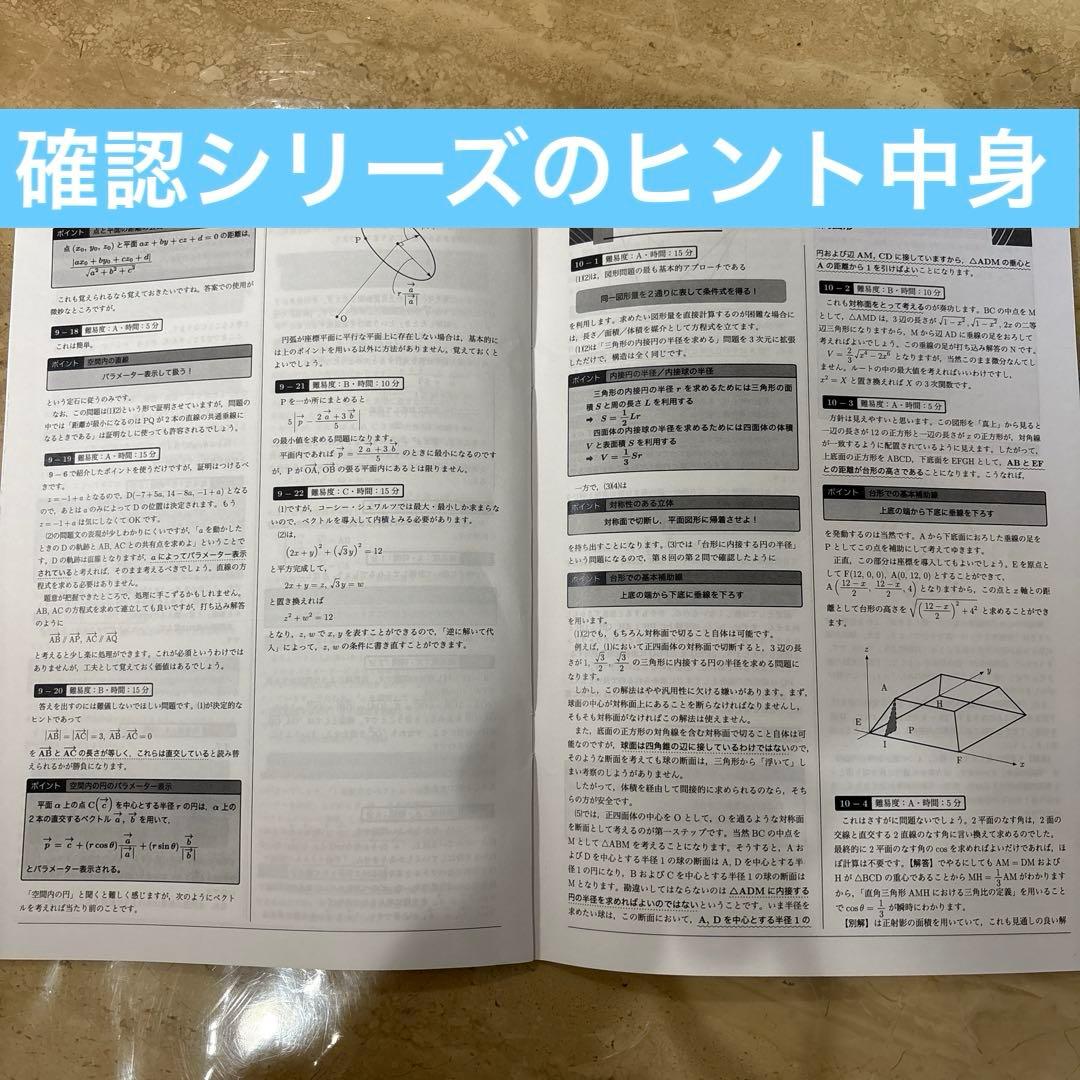 確認シリーズのヒント中身
ポイント 点と平面の距離の公
点 (x₀, y₀, z₀) と平面 ax + by + cz + d = 0 の距離は,
|ax₀ + by₀ + cz₀ + d|
√a² + b² + c²
これも覚えられるなら覚えておきたいですね。答案での使用が
微妙なところですが。
9 – 18 難易度：A・時間：5分
これは簡単。
ポイント 空間内の直線
パラメーター表示して扱う！
という定石に従うのみです。
なお、この問題は(1)(2)という形で証明させていますが、問題の
中では「距離が最小になるのは PQ が 2 本の直線の共通垂線に
なるときである」は証明なしに使っても許容されるでしょう。
9 – 19 難易度：A・時間：15分
9 – 6 で紹介したポイントを使うだけですが、証明はつけるべ
きです。
z = −1 + a となるので、D(−7 + 5a, 14 − 8a, −1 + a) となる
ので、あとは a のみによって D の位置は決定されます。もう
z = −1 + a は気にしなくて OK です。
(2)の問題文の表現が少しわかりにくいですが、「a を動かした
ときの D の軌跡と AB, AC との共有点を求めよ」ということで
す。D の軌跡は直線となりますが、a によってパラメーター表示
されていると考えれば、そのまま考えるべきでしょう。直線の方
程式を求める必要はありません。
題意が把握できたところで、処理に手こずるかもしれません。
AB, AC の方程式を求めて連立しても良いですが、打ち込み解答
のように
AB→ ∥ AP→, AC→ ∥ AQ→
と考えると少し楽に処理ができます。これが必須というわけでは
ありませんが、工夫として覚えておく価値はあるでしょう。
9 – 20 難易度：B・時間：15分
答えを出すのには難儀しないでほしい問題です。(1)が決定的な
ヒントであって
|AB→| = |AC→| = 3, AB→ · AC→ = 0
を AB→ と AC→ の長さが等しく、これらは直交していると読み替
えられるかが勝負になります。
ポイント 空間内の円のパラメーター表示
平面 α 上の点 C(c→) を中心とする半径 r の円は、α 上の
2 本の直交するベクトル a→, b→ を用いて、
p→ = c→ + (r cos θ) a→/|a→| + (r sin θ) b→/|b→|
とパラメーター表示される。
「空間内の円」と聞くと難しく感じますが、次のようにベクト
ルを考えれば当たり前のことです。
P
r a→/|a→|
O
円弧が座標平面に平行な平面上に存在しない場合は、基本的に
は上のポイントを用いる以外に方法がありません。覚えておくと
よいでしょう。
9 – 21 難易度：B・時間：10分
P を一か所にまとめると
5 |p→ − (2a→ + 3b→)/5|
の最小値を求める問題になります。
平面内であれば p→ = (2a→ + 3b→)/5 のときに最小になるのです
が、P が OA→, OB→ の張る平面内にあるとは限りません。
9 – 22 難易度：C・時間：15分
(1)ですが、コーシー・シュワルツでは最大・最小しか求まらな
いので、ベクトルを導入して内積とみる必要があります。
(2)は、
(2x + y)² + (√3y)² = 12
と平方完成して、
2x + y = z, √3y = w
と置き換えれば
z² + w² = 12
となり、z, w で x, y を表すことができるので、「逆に解いて代
入」によって、z, w の条件に書き直すことができます。
10 – 1 難易度：A・時間：15分
(1)(2)は、図形問題の最も基本的アプローチである
同一図形量を2通りに表して条件式を得る！
を利用します。求めたい図形量を直接計算するのが困難な場合に
は、長さ/面積/体積を媒介として方程式を立てます。
(1)(2)は「三角形の内接円の半径を求める」問題を 3 次元に拡張
しただけで、構造は全く同じです。
ポイント 内接円の半径／内接球の半径
三角形の内接円の半径 r を求めるためには三角形の面
積 S と周の長さ L を利用する
⇒ S = 1/2 Lr
四面体の内接球の半径を求めるためには四面体の体積
V と表面積 S を利用する
⇒ V = 1/3 Sr
一方で、(3)(4)は
ポイント 対称性のある立体
対称面で切断し、平面図形に帰着させよ！
を持ち出すことになります。(3)では「台形に内接する円の半径」
という問題になるので、第 8 回の第 2 問で確認したように
ポイント 台形での基本補助線
上底の端から下底に垂線を下ろす
を用います。
(1)(2)でも、もちろん対称面で切ること自体は可能です。
例えば、(1)において正四面体の対称面で切断すると、3 辺の長
さが 1, √3/2, √3/2 の三角形に内接する円の半径を求める問題に
なります。
しかし、この解法はやや汎用性に欠ける嫌いがあります。まず、
球面の中心が対称面上にあることを断らなければなりませんし、
そもそも対称面がなければこの解法は使えません。
また、底面の正方形の対角線を含む対称面で切ること自体は可
能なのですが、球面は四角錐の辺に接しているわけではないので、
そのような断面を考えても球の断面は、三角形から「浮いて」し
まい考察のしようがありません。
したがって、体積を経由して間接的に求められるのなら、そち
らの方が安全です。
(5)では、正四面体の中心を O として、O を通るような対称面
を断面として考えるのが第一ステップです。当然 BC の中点を
M として △ABM を考えることになります。そうすると、A お
よび D を中心とする半径 1 の球の断面は A, D を中心とする半
径 1 の円になり、B および C を中心とする半径 1 の球の断面は
M となります。勘違いしてはならないのは △ADM に内接する
円の半径を求めればよいのではないということです。いま半径を
求めたい球は、この断面において、A, D を中心とする半径 1 の
円および辺 AM, CD に接していますから、△ADM の重心と
A の距離から 1 を引けばよいことになります。
10 – 2 難易度：B・時間：10分
これも対称面をとって考えるのが奏功します。BC の中点を M
として、△AMD は、3 辺の長さが √1 − x², √1 − x², 2x の二等
辺三角形になりますから、M から辺 AD に垂線の足をおろして
考えればよいでしょう。この垂線の足が打ち込み解答の N です。
V = 2/3 √x⁴ − 2x⁶ となりますが、当然このまま微分なんてし
ません。ルートの中の最大値を考えればいいわけですし、
x² = X と置き換えれば X の 3 次関数です。
10 – 3 難易度：A・時間：5分
方針は見えやすいと思います。この図形を「真上」から見ると
一辺の長さが 12 の正方形と一辺の長さが x の正方形が、対角線
が一致するように配置されているように見えます。したがって、
上底面の正方形を ABCD, 下底面を EFGH として、AB と EF
との距離が台形の高さであることになります。こうなれば、
ポイント 台形での基本補助線
上底の端から下底に垂線を下ろす
を発動するのは当然です。A から下底面におろした垂線の足を
P としてこの点を補助に計して考えてゆきます。
正直、この部分は座標を導入してもよいでしょう。E を原点と
して F(12, 0, 0), A(0, 12, 0) とすることができて、
A((12 − x)/2, (12 − x)/2, 4) となりますから、この点と x 軸との距
離として台形の高さを √((12 − x)/2)² + 4² と求めることができ
ます。
z
y
A
H
E
P
I
F
x
10 – 4 難易度：A・時間：5分
これはさすがに問題ないでしょう。2 平面のなす角は、2 面の
交線と直交する 2 直線のなす角に言い換えて求めるのでした。
最終的に 2 平面のなす角の cos を求めればよいだけであれば、ほ
ぼ計算は不要です。【解答】でやるにしても AM = DM および
H が △BCD の重心であることから MH = 1/3 AM がわかります
から、「直角三角形 AMH における三角比の定義」を用いること
で cos θ = 1/3 が瞬時にわかります。
【別解】は正射影の面積を用いていて、これも見通しの良い解